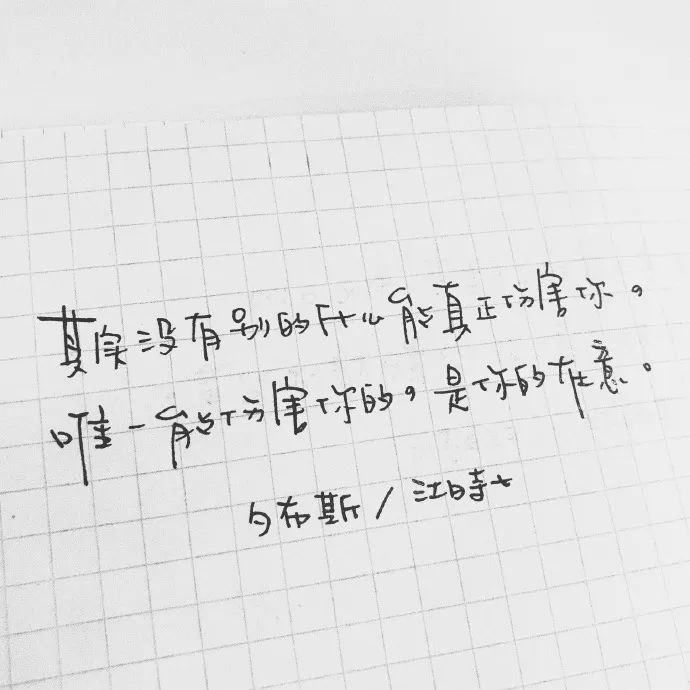 其实没有别的什么能真正伤害你。
唯一能伤害你的。是你的在意。
布斯 / 江時